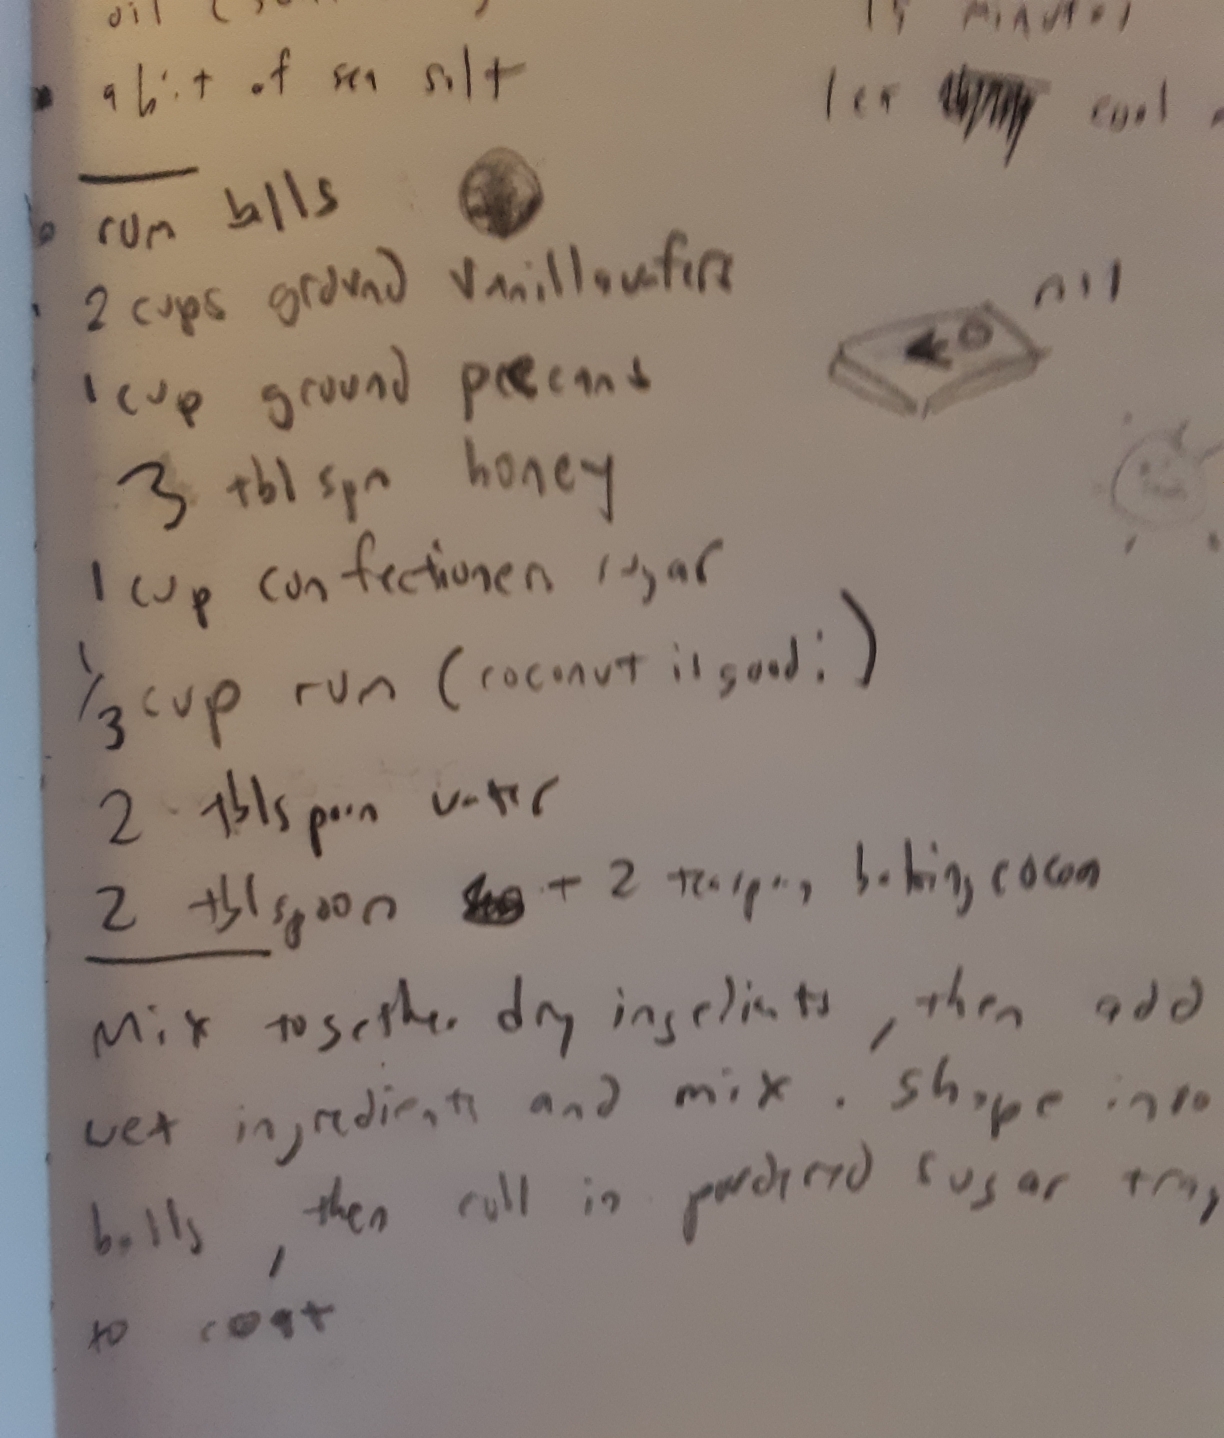 oil (
15 minutes
a bit of sea salt
let cool
rum balls
2 cups ground vanilla wafers
1 cup ground pecans
3 tblspn honey
1 cup confectioners sugar
1/3 cup rum (coconut is good :)
2 tblspoon water
2 tblspoon + 2 teaspoon baking cocoa
Mix together dry ingredients, then add
wet ingredients and mix. Shape into
balls, then roll in powdered sugar tray
to coat